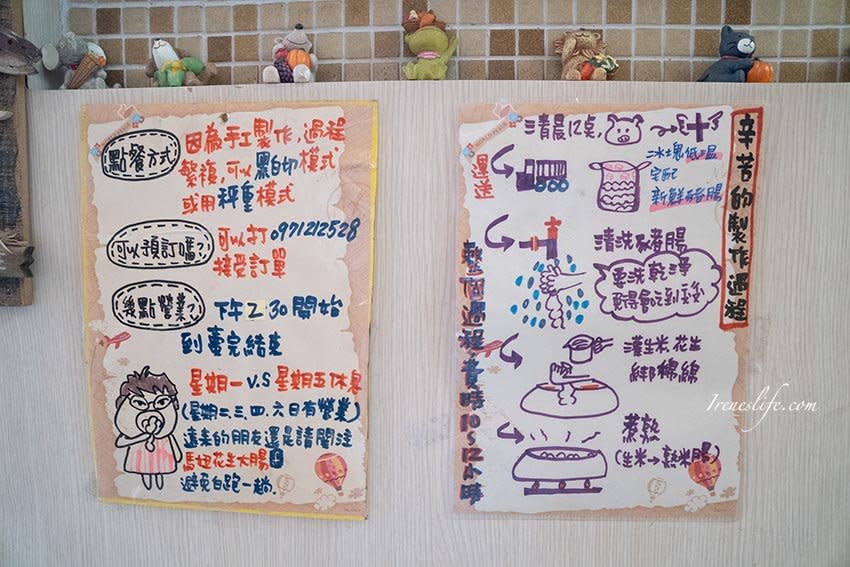 點餐方式
因為手工製作,過程
繁複,可以黑白切模式
或用秤重模式
可以預訂嗎?
可以打0971212528
接受訂單
幾點營業?
下午2:30開始
到賣完結束
星期一V.S星期五休息
(星期二、三、四、六日有營業)
遠來的朋友還是請關注
馬妞花生大腸
避免白跑一趟.
辛苦的製作過程
清晨12點,
運送
冰塊低溫
宅配
新鮮豬腸
清洗豬腸
要洗乾淨
整個過程,費時10~12小時
灌生米、花生
綁棉綿
煮熟
(生米→熟米腸)
Ireneslife.com